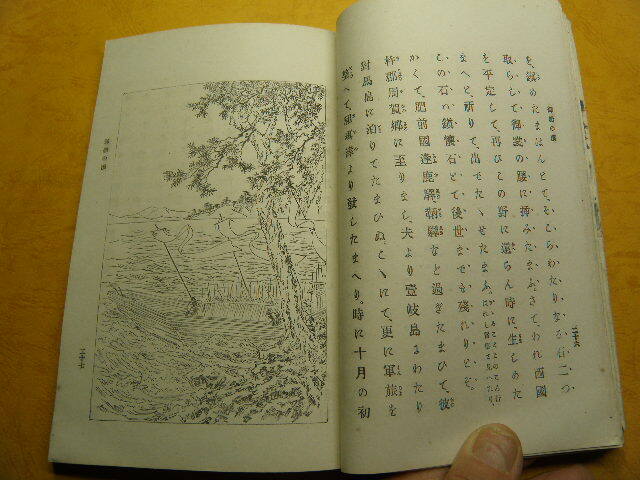 を、鎭めたまはんとて、そこらわたりなる石二つ
取らして、御裳の腰に挿みたまふ。さて、われ西國
を平定して、再びこの野に還らん時に、生しめた
まへと、祈りて、出でたゝせたまふ。
この石ハ、鎮懐石とて、後世までも残れりとぞ。
かくて、肥前國逢鹿驛、登望驛なと過ぎたまひて、彼
杵郡周賀郷に至りまし、夫より壹岐島にわたり
對馬島に泊りてたまひぬ。こゝにて、更に軍旅を
整へて、和珥津より發したまへり。時に十月の初
二十六
二十七